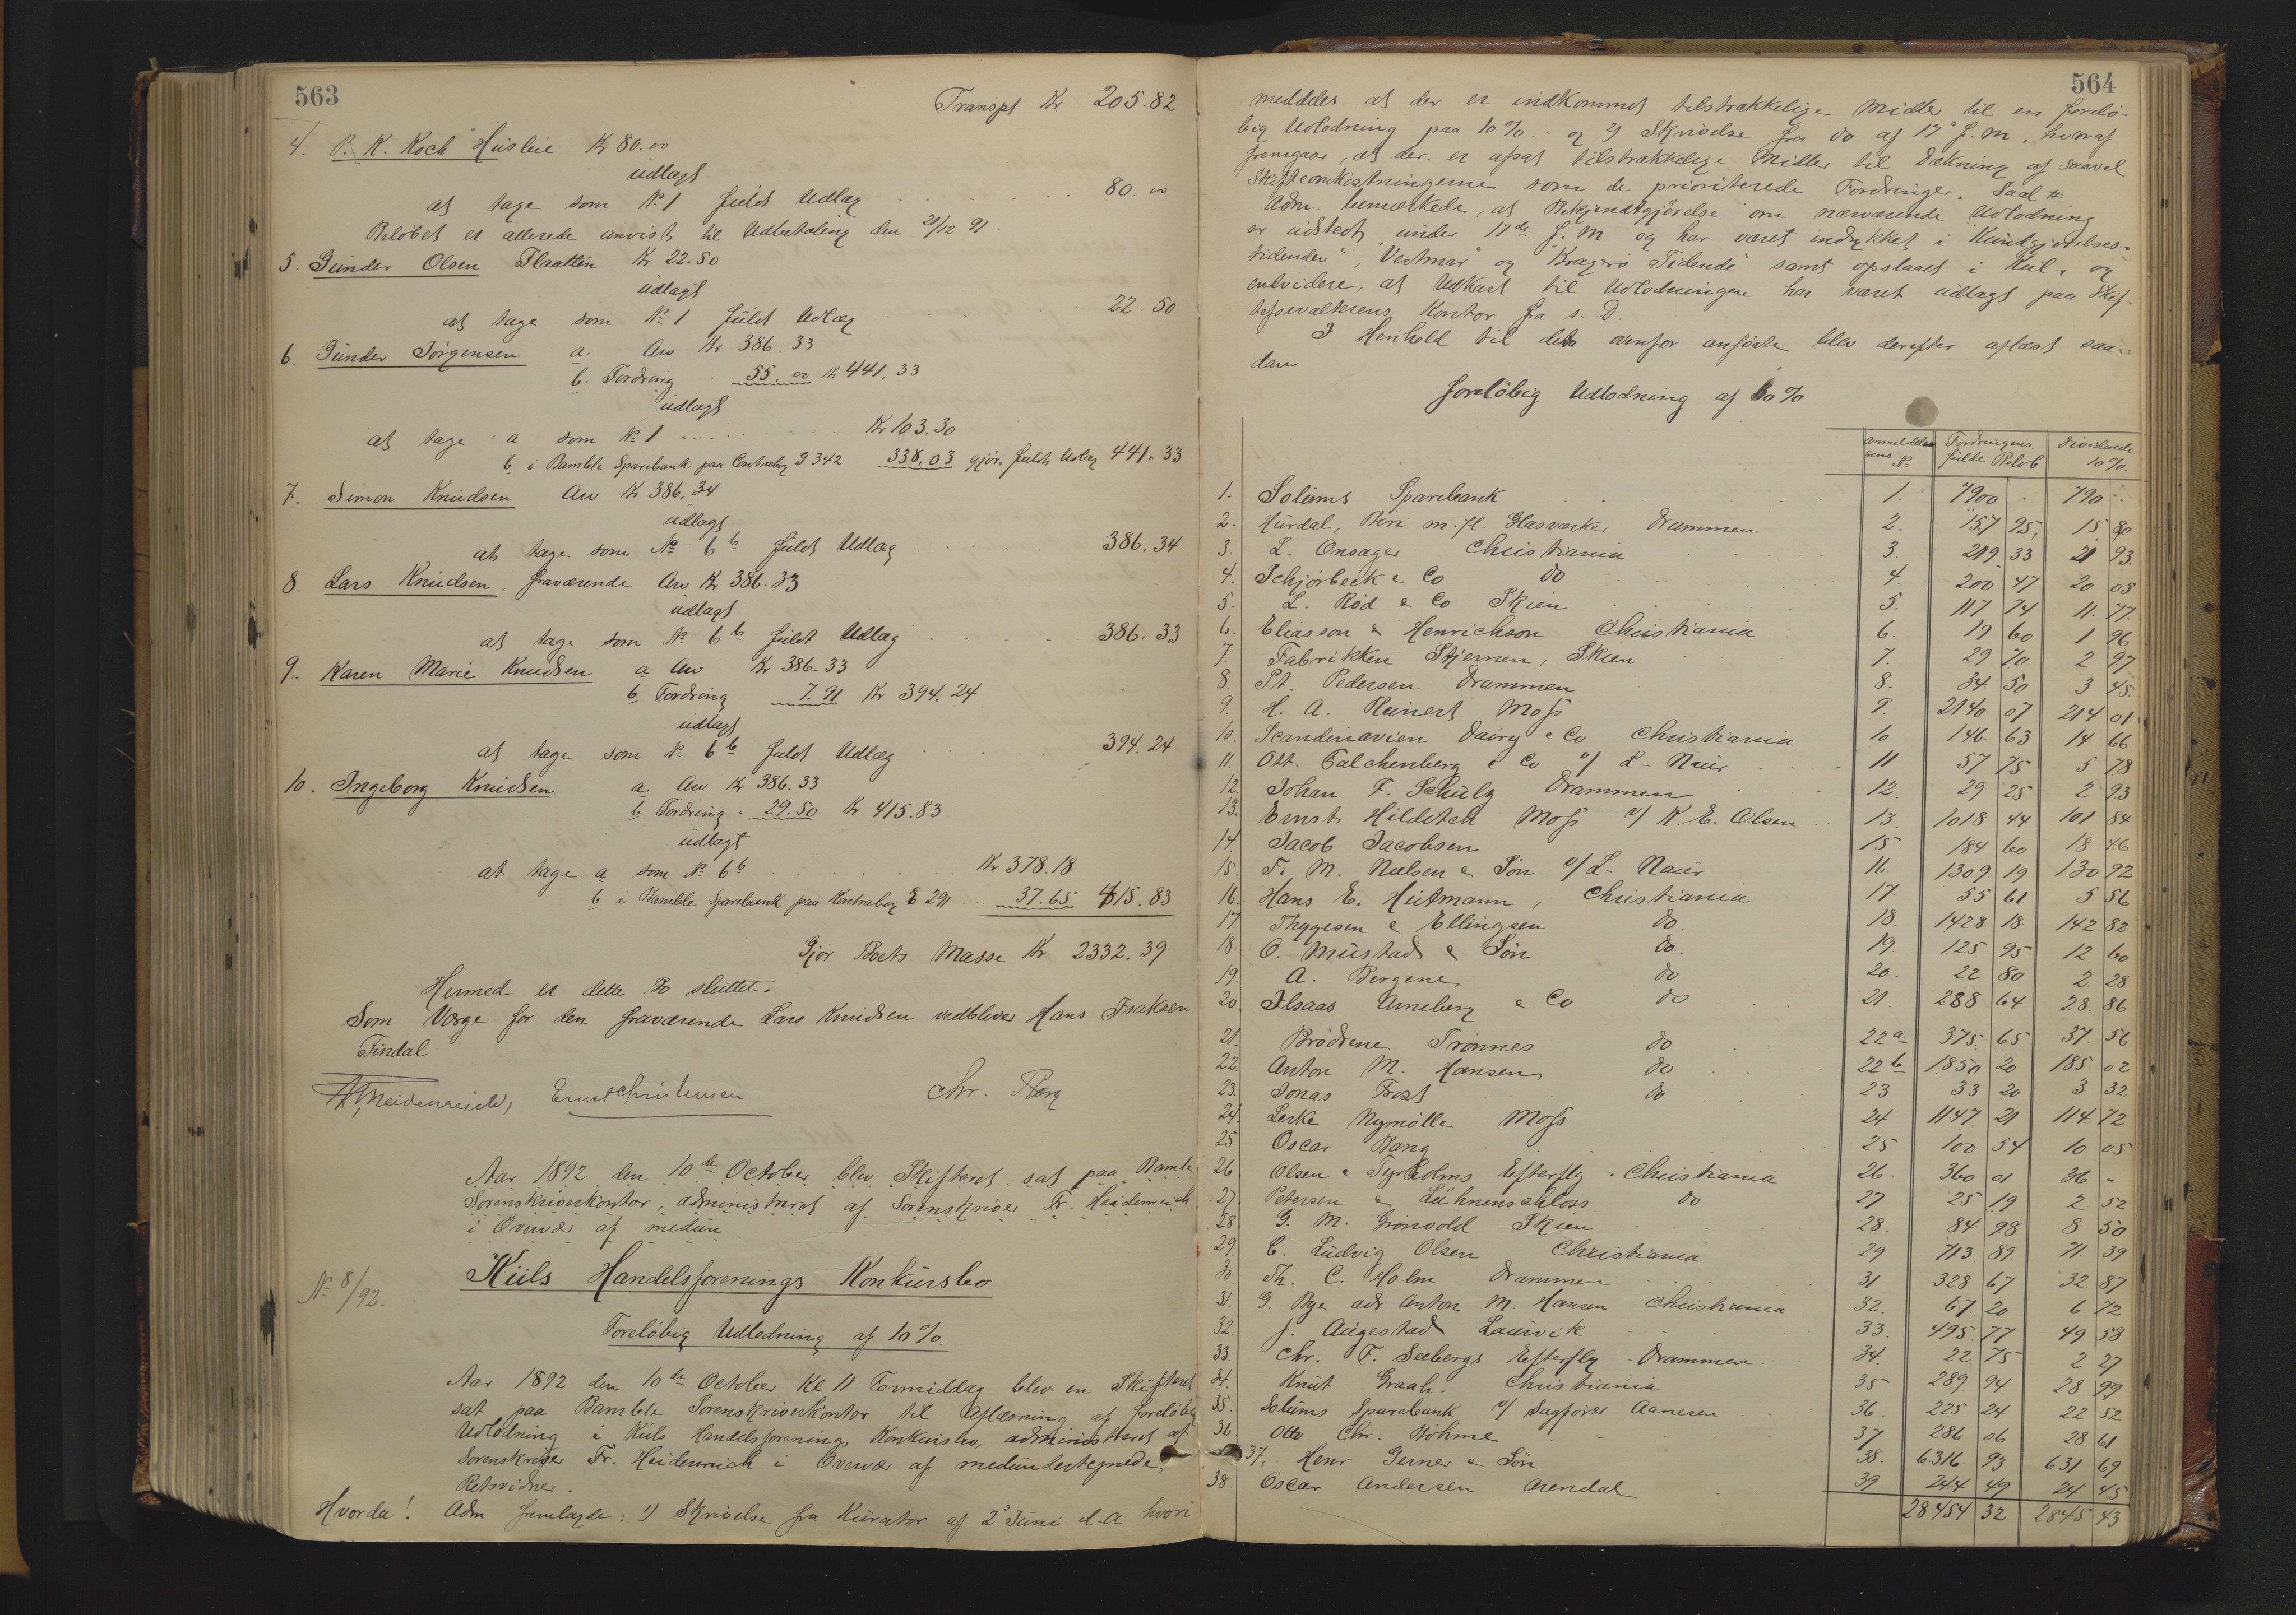 563
Transpt Kr 205.82
4. P. K. Koch Husleie Kr 80.00
udlagt
at tage som No 1 fuldt Udlæg 80.00
Beløbet er allerede anvist til Udbetaling den 21/12 91.
5. Gunder Olsen Flaatten Kr 22.50
udlagt
at tage som No 1 fuldt Udlæg 22.50
6. Gunder Jørgensen a. Arv Kr 386.33
b. Fordring 55.00 Kr 441.33
udlagt
at tage a som No 1 Kr 103.30
b i Bamble Sparebank paa Contrabog 3342 338,03 gjør fuldt Udlæg 441.33
7. Simon Knudsen Arv Kr 386,34
udlagt
at tage som No 6b fuldt Udlæg 386.34
8. Lars Knudsen, fraværende Arv Kr 386.33
udlagt
at tage som No 6b fuldt Udlæg 386.33
9. Karen Marie Knudsen a Arv Kr 386.33
b Fordring 7.91 Kr 394.24
udlagt
at tage som No 6b fuldt Udlæg 394.24
10. Ingeborg Knudsen a. Arv Kr 386.33
b Fordring 29.50 Kr 415.83
udlagt
at tage a som No 6b Kr 378.18
b i Bamble Sparebank paa Kontrabog 291 37.65 415.83
Gjør Boets Masse Kr 2332.39
Hermed er dette Bo sluttet.
Som Værge for den fraværende Lars Knudsen vedbliver Hans Isaksen
Tindal
Fr. Heidenreich, Ernst Christensen Chr. Berg
Aar 1892 den 10de October blev Skifteret sat paa Bamble
Sorenskriverkontor, administreret af Sorenskriver Fr. Heidenreich
i Overvær af medun
No 8/92. Kiils Handelsforenings Konkursbo
Foreløbig Udlodning af 10%.
Aar 1892 den 10de October Kl 11 Formiddag blev en Skifteret
sat paa Bamble Sorenskriverkontor til Aflæsning af foreløbig
Udlodning i Kiils Handelsforenings Konkursbo, administreret af
Sorenskriver Fr. Heidenreich i Overvær af medundertegnede
Retsvidner.
Hvorda! Adm fremlagde: 1) Skrivelse fra Kurator af 2o Juni d.A hvori
564
meddeles at der er indkommet tilstrækkelige Midler til en foreløbig
Udlodning paa 10%. og 2) Skrivelse fra do af 17o f.M, hvoraf
fremgaar, at der er afsat tilstrækkelige Midler til Dækning af saavel
Skifteomkostningerne som de prioriterede Fordringer.
Adm. bemærkede, at Bekjendtgjørelse om nærværende Udlodning
er udstedt under 17de f.M og har været indrykket i Kundgjørelses-
tidenden", "Vestmar" og "Kragerø Tidende" samt opslaaet i Kiil, og
endvidere, at Udkast til Udlodningen har været udlagt paa Skif-
teforvalterens Kontor fra s. D.
I Henhold til det ovenfor anførte blev derefter aflæst saa-
dan
foreløbig Udlodning af 10%
Anmeldelsens No Fordringens fulde Beløb Dividende 10%.
1. Solums Sparebank 1. 7900 - 790 -
2. Hurdal, Biri m. fl. Glasværker Drammen 2. 157 95 15 80
3. L. Onsager Christiania 3. 219 33 21 93
4. Schjørbeck & Co do 4. 200 47 20 05
5. L. Rød & Co Skien 5. 117 74 11 77
6. Eliasson & Henrichson Christiania 6. 19 60 1 96
7. Fabrikken Stjernen, Skien 7. 29 70 2 97
8. Pt. Pedersen Drammen 8. 34 50 3 45
9. H. A. Reinert Moss 9. 2140 07 214 01
10. Scandinavien Dairy & Co Christiania 10 146 63 14 66
11. Ott. Falchenberg & Co v/ L. Naur 11 57 75 5 78
12. Johan F. Schulz Drammen 12. 29 25 2 93
13. Ernst Hilditch Moss v/ K. E. Olsen 13. 1018 44 101 84
14. Jacob Jacobsen 15 184 60 18 46
15. Fr. M. Nielsen & Søn v/ L. Naur 16. 1309 19 130 92
16. Hans E. Hütmann, Christiania 17 55 61 5 56
17. Thygesen & Ellingsen do 18. 1428 18 142 82
18. O. Mustad & Søn do. 19. 125 95 12 60
19. A. Bergene do 20. 22 80 2 28
20. Ilsaas Arneberg & Co do 21. 288 64 28 86
21. Brødrene Trønnes do 22a 375 65 37 56
22. Anton M. Hansen do 22b 1850 20 185 02
23. Jonas Frost do 23 33 20 3 32
24. Lerke Nymølle Moss 24 1147 21 114 72
25 Oscar Bang 25 100 54 10 05
26. Olsen & Tyrholms Efterflg. Christiania 26. 360 01 36 -
27 Petersen & Lühnenschloss do 27 25 19 2 52
28 G. M. Grønvold Skien 28. 84 98 8 50
29. C. Ludvig Olsen Christiania 29 713 89 71 39
30 Th. C. Holm Drammen 31 328 67 32 87
31. G. Bye adr Anton M. Hansen Christiania 32. 67 20 6 72
32. J. Augestad Laurvik 33. 495 77 49 58
33. Chr. F. Seebergs Efterflg. Drammen 34. 22 75 2 27
34. Knut Graah. Christiania 35 289 94 28 99
35. Solums Sparebank v/ Sagfører Aanesen 36. 225 24 22 52
36 Otto Chr. Bøhme 37 286 06 28 61
37. Henr Gerner & Søn 38. 6316 93 631 69
38. Oscar Andersen Arendal 39 244 49 24 45
28454 32 2845 43